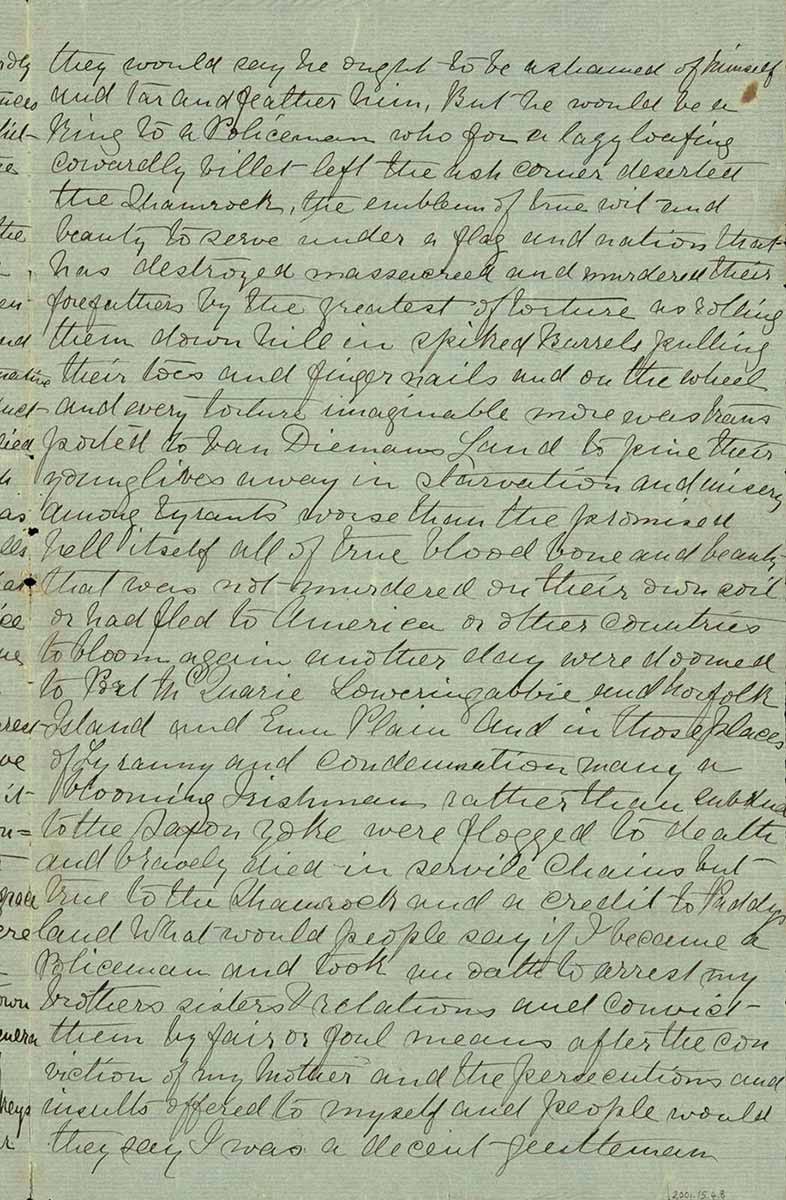 they would say he ought to be ashamed of himself
and tar and feather him, But he would be a
King to a Policeman who for a lazy loafing
cowardly billet left the ash corner deserted
the Shamrock, the emblem of true wit and
beauty to serve under a flag and nation that
has destroyed massacreed and murdered their
forefathers by the greatest of torture as rolling
them down hill in spiked Barrels pulling
their toes and finger nails and on the wheel
and every torture imaginable more was trans
ported to Van Diemans Land to pine their
young lives away in starvation and misery
among tyrants worse than the promised
hell itself all of true blood bone and beauty
that was not murdered on their own soil
or had fled to America or other countries
to bloom again another day were doomed
to Port McQuarie Toweringabbie and norfolk
Island and Emu Plain And in those places
of Tyranny and condemnation many a
blooming Irishman rather than subdue
to the Saxon yoke were flogged to death
and bravely died in servile chains but
true to the Shamrock and a credit to Paddys
land What would people say if I became a
Policeman and took an oath to arrest my
brothers sisters & relations and convict
them by fair or foul means after the con
viction of my Mother and the persecutions and
insults offered to myself and people would
they say I was a decent gentleman
2001.15.4.8